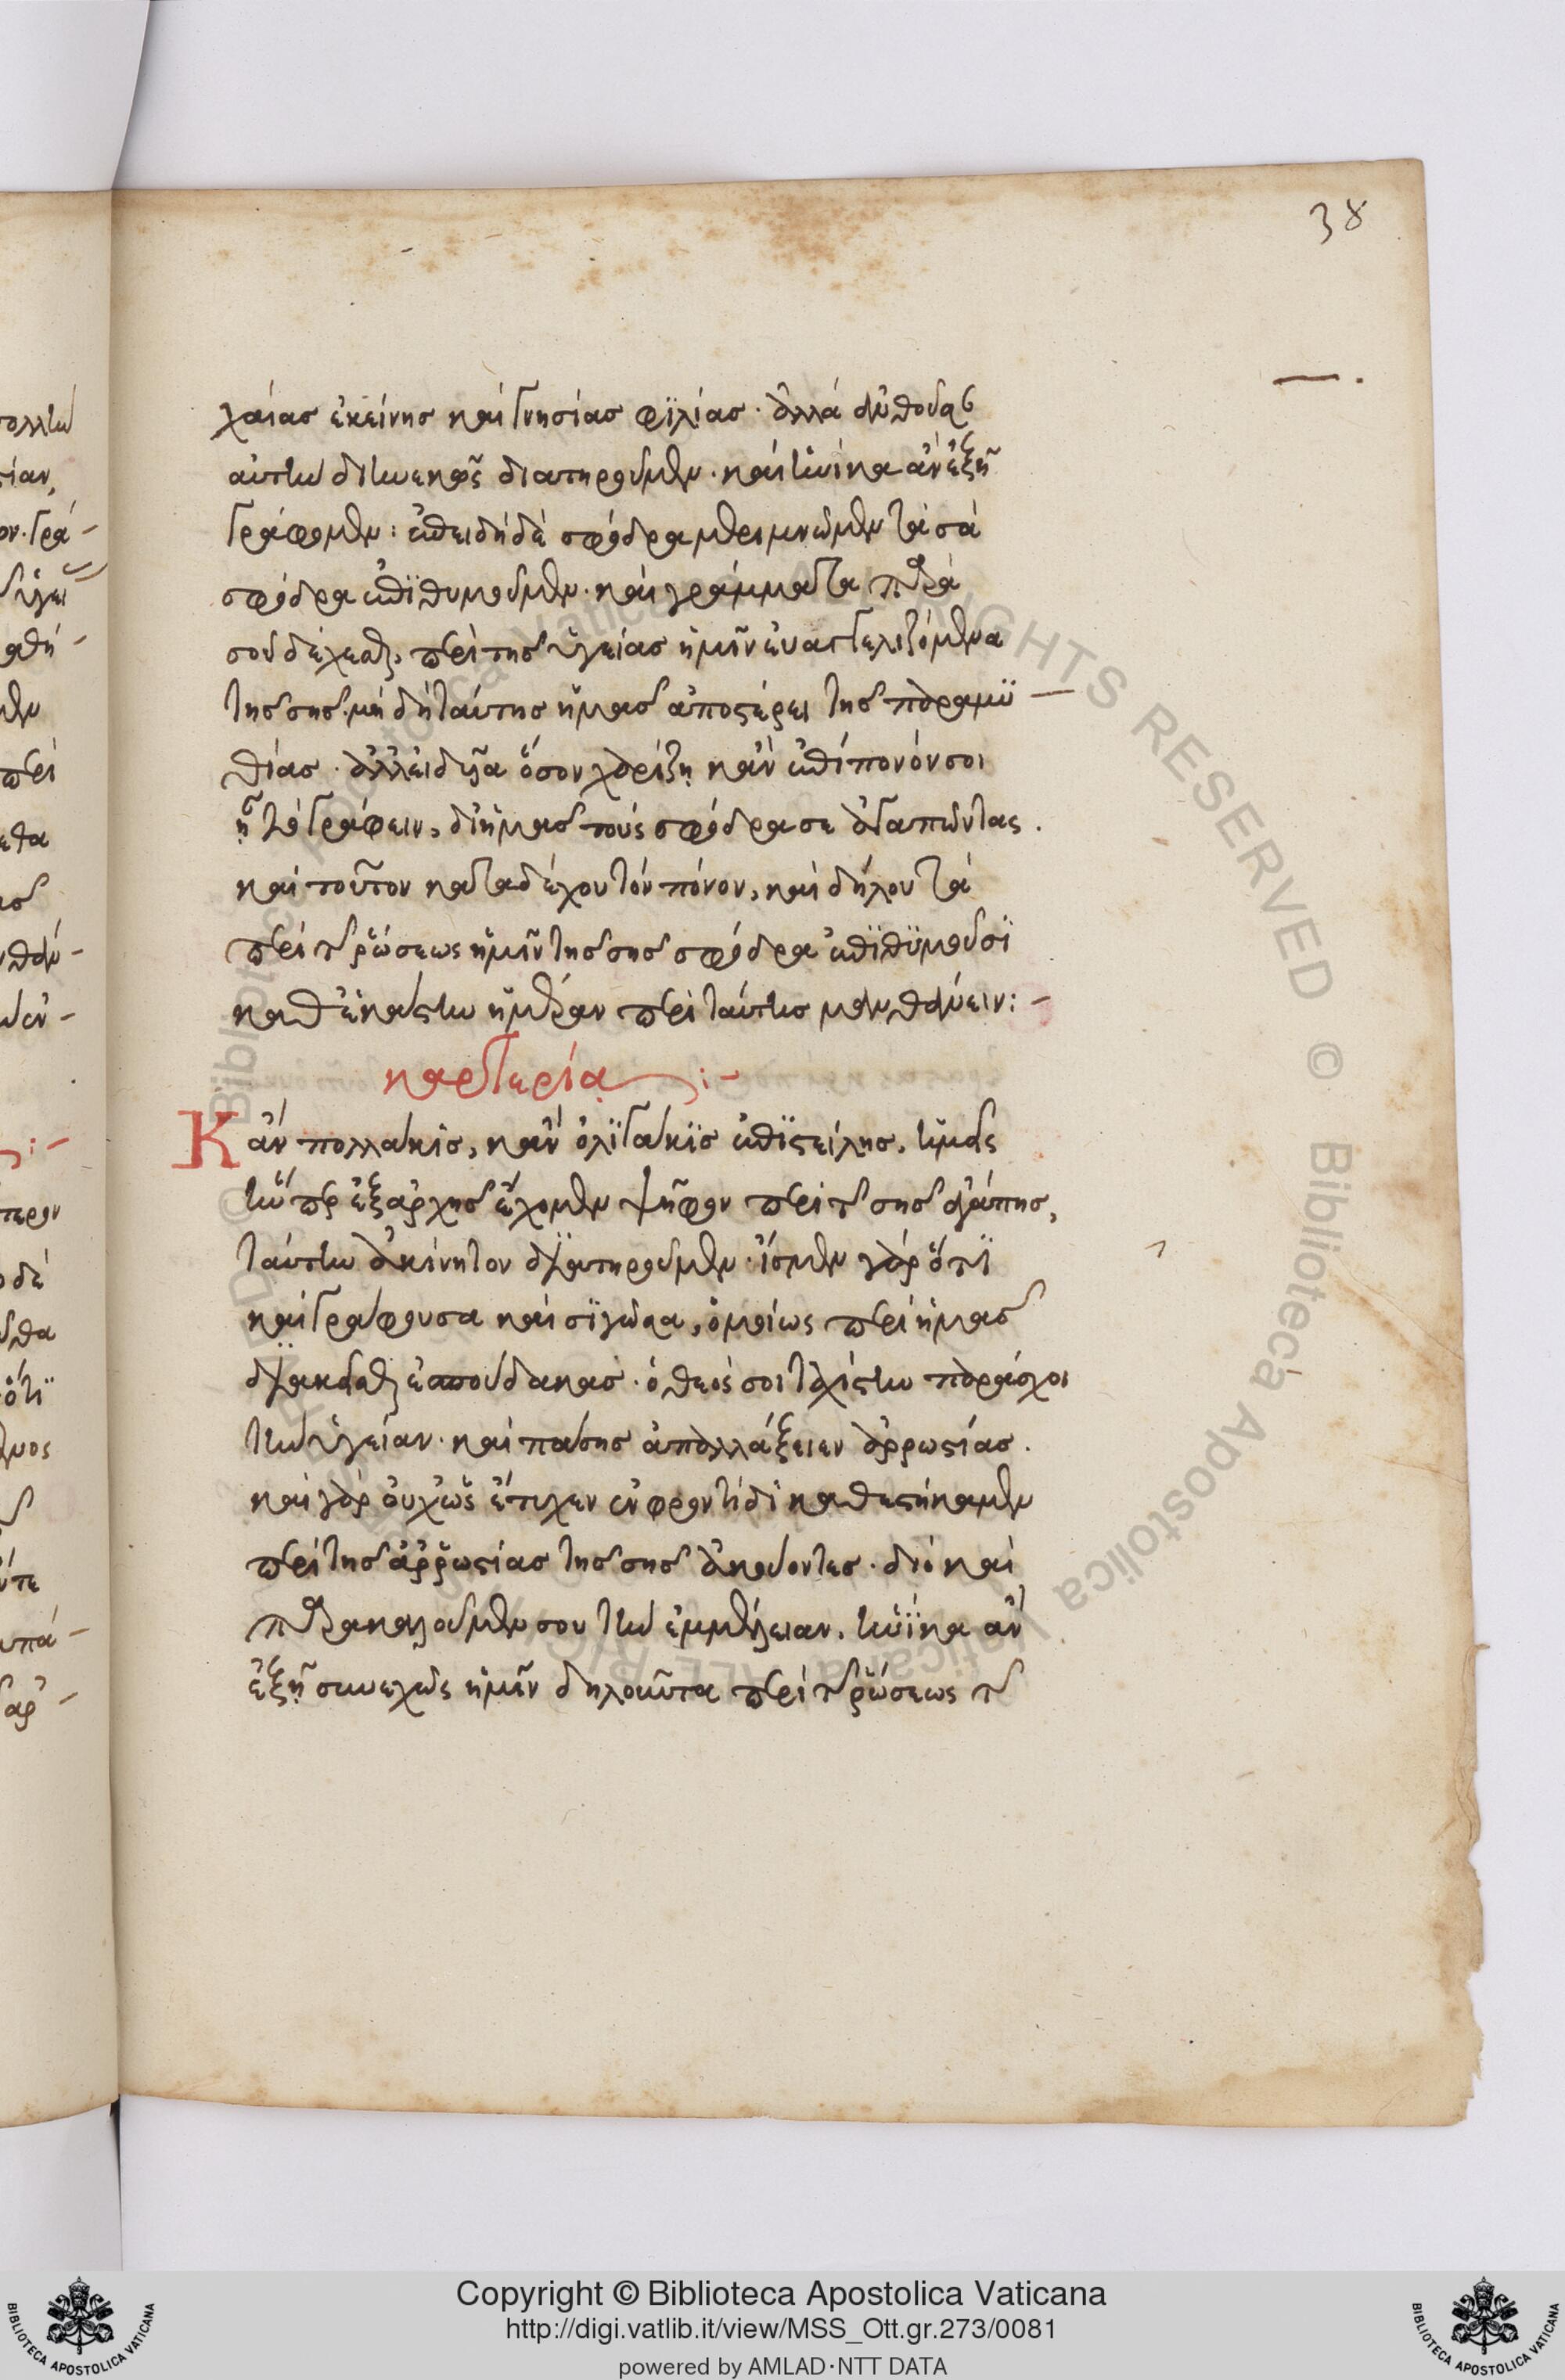 38
χαίας ἐκείνης καὶ γνησίας φϊλίας. ἀλλὰ ἀνθοῦσαν
αὐτὴν διηνεκῶς διατηροῦμεν. καὶ ἡνίκα ἂν ἐξῇ
γράφομεν: ἐπειδὴ δὲ σφόδρα μεριμνῶμεν τὰ σὰ
σφόδρα ἐπϊθυμοῦμεν. καὶ γράμματα παρὰ
σοῦ δέχεσθαι, περὶ τῆς ὑγείας ἡμῖν εὐαγγελιζόμενα
τῆς σῆς. μὴ δὴ ταύτης ἡμᾶς ἀποστέρει τῆς παραμϋ
θίας. ἀλλ' εἰδυῖα ὅσον χαρίζῃ κἂν ἐπίπονόν σοι
ᾖ τὸ γράφειν, δι' ἡμᾶς τοὺς σφόδρα σε ἀγαπῶντας.
καὶ τοῦτον καταδέχου τὸν πόνον, καὶ δήλου τὰ
περὶ τῆς ῥώσεως ἡμῖν τῆς σῆς σφόδρα ἐπϊθϋμοῦσϊ
καθ' ἑκάστην ἡμέραν περὶ ταύτης μανθάνειν:-
καρτερία:-
Κἂν πολλάκις, κἂν ὀλϊγάκϊς ἐπϊστείλης, ἡμεῖς
ἣν περ ἐξ ἀρχῆς ἔχομεν ψῆφον περὶ τῆς σῆς ἀγάπης,
ταύτην ἀκίνητον διατηροῦμεν. ἴσμεν γὰρ ὅτϊ
καὶ γράφουσα καὶ σϊγῶσα, ὁμοίως περὶ ἡμᾶς
διακεῖσθαι ἐσπούδακας. ὁ θεός σοι ταχίστην παράσχοι
τὴν ὑγείαν. καὶ πάσης ἀπαλλάξειεν ἀρρωστίας.
καὶ γὰρ οὐχ ὡς ἔτυχεν ἐν φροντίδι καθεστήκαμεν
περὶ τῆς ἀρρωστίας τῆς σῆς ἀκούοντες. διὸ καὶ
παρακαλοῦμεν σου τὴν ἐμμέλειαν, ἡνϊκα ἂν
ἐξῇ συνεχῶς ἡμῖν δηλοῦντα περὶ τῆς ῥώσεως τῆς
Copyright © Biblioteca Apostolica Vaticana
http://digi.vatlib.it/view/MSS_Ott.gr.273/0081
powered by AMLAD·NTT DATA